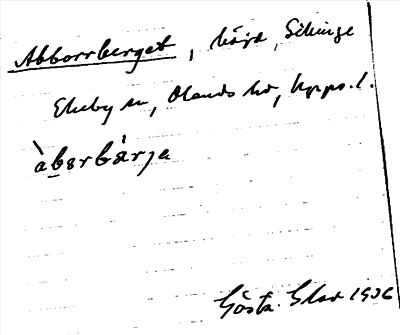 Abborrberget, höjd, Sikinge
Ekeby sn, Olands hd, Upps. l.
àbərbä́rja
Gösta Elov 1936